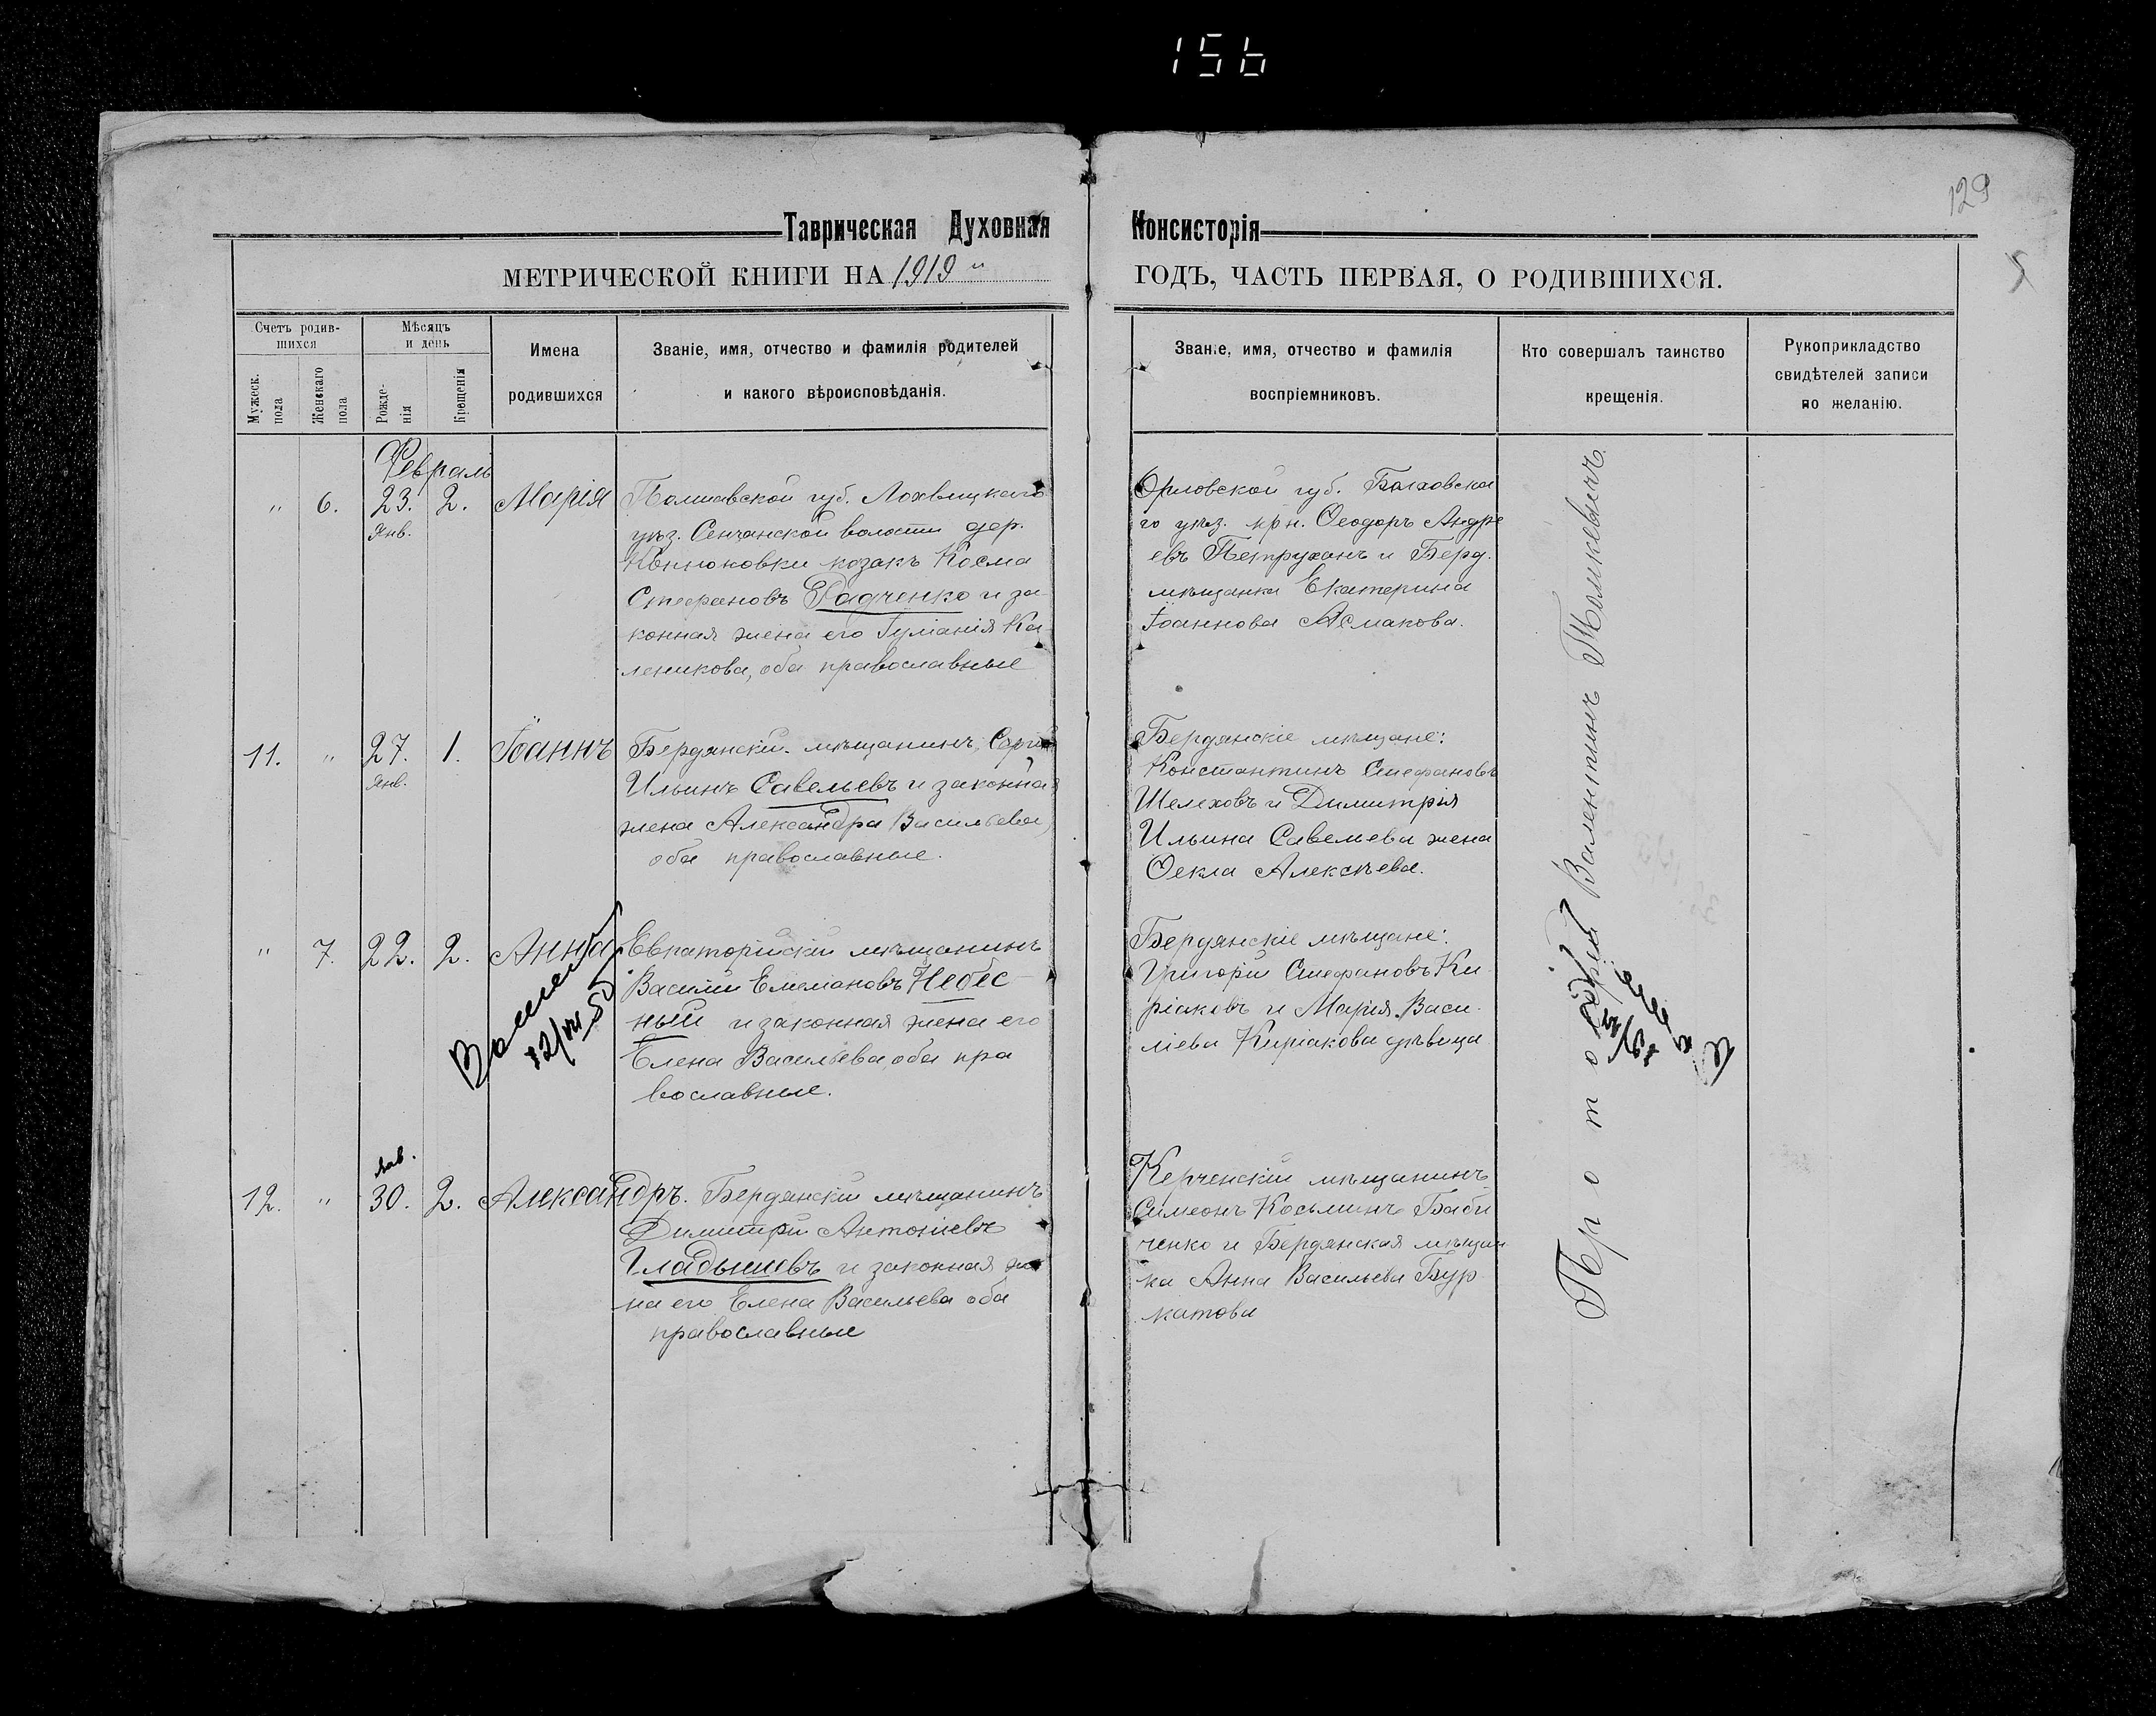 156
129
Таврическая Духовная Консисторія
МЕТРИЧЕСКОЙ КНИГИ НА 1919 ГОДЪ, ЧАСТЬ ПЕРВАЯ, О РОДИВШИХСЯ.
Счетъ родив-
шихся
Мужеск.
пола
Женскаго
пола
Мѣсяцъ
и день
Рожде-
нія
Крещенія
Имена
родившихся
Званіе, имя, отчество и фамилія родителей
и какого вѣроисповѣданія.
Званіе, имя, отчество и фамилія
воспріемниковъ.
Кто совершалъ таинство
крещенія.
Рукоприкладство
свидѣтелей записи
по желанію.
Февраль
" 6. 23. 2. Марія
Янв.
Полтавской губ. Лохвицкаго
уѣз. Сенчанской волости дер.
козакъ Косма
Стефановъ Радченко и за
конная жена его Іуліанія Ка
леникова, оба православные
Орловской губ. Болховска
го уѣз. крн. Ѳеодоръ Андре
евъ Петруханъ и Берд.
мѣщанка Екатерина
Іоаннова Асмакова.
11. " 27. 1. Іоаннъ
Янв.
Бердянскій мѣщанинъ Сергій
Ильинъ Савельевъ и законная
жена Александра Васильева,
оба православные.
Бердянскіе мѣщане:
Константинъ Стефановъ
Шелеховъ и Димитрія
Ильина Савельева жена
Ѳекла Алексѣева.
" 7. 22. 2. Анна
Евпаторійскій мѣщанинъ
Василій Емеліановъ Небес-
ный и законная жена его
Елена Васильева, оба пра
вославные.
Бердянскіе мѣщане:
Григорій Стефановъ Ки
ріаковъ и Марія Васи-
ліева Киріакова дѣвица
12. " 30. 2. Александръ.
Янв.
Бердянскій мѣщанинъ
Димитрій Антоніевъ
Гладышевъ и законная же
на его Елена Васильева оба
православные
Керченскій мѣщанинъ
Симеонъ Косьминъ Баби
ченко и Бердянская мѣщан
ка Анна Васильева Бур
катова
Протоіерей Валентинъ Томкевичъ.